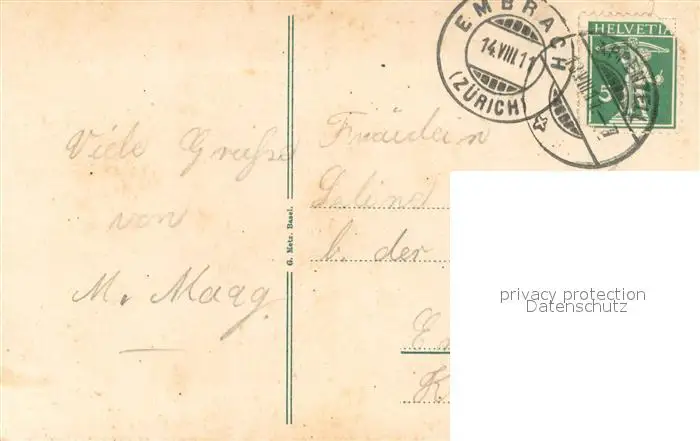 Viele Grüsse
von
M. Maag
G. Metz, Basel.
EMBRACH
14.VIII.11
(ZÜRICH)
HELVETIA
5
Fräulein
b. der
privacy protection
Datenschutz